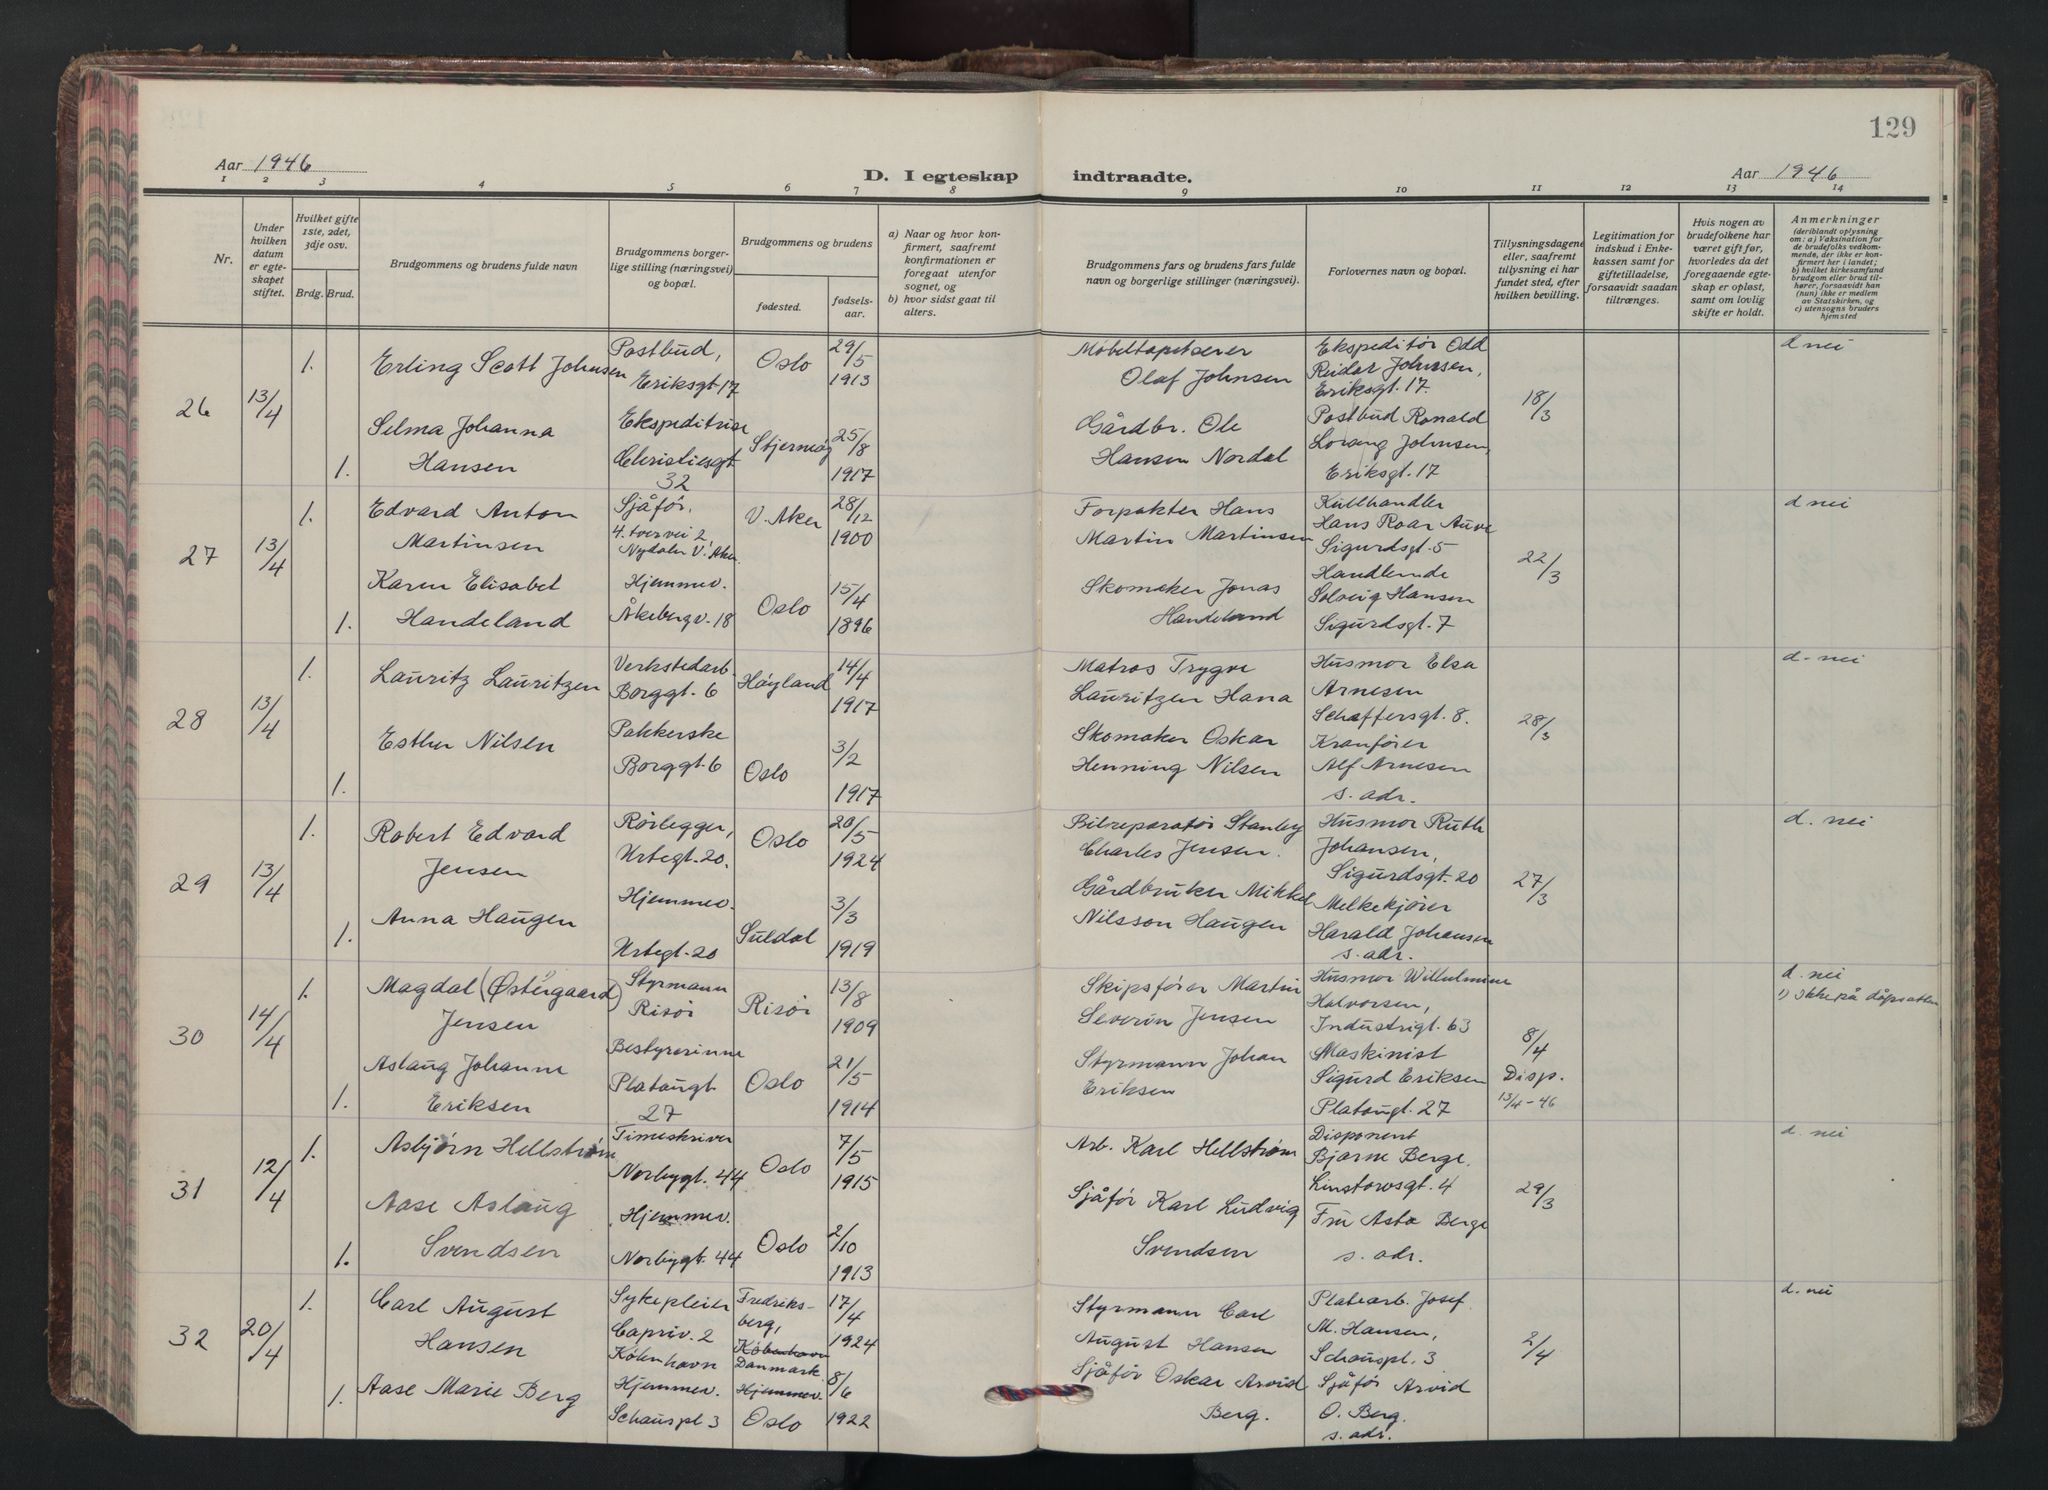 129
Aar 1946
D. I egteskap indtraadte.
Aar 1946
1 2 3 4 5 6 7 8 9 10 11 12 13 14
Nr.
Under hvilken datum er egteskapet stiftet.
Hvilket gifte 1ste, 2det, 3dje osv.
Brdg. Brud.
Brudgommens og brudens fulde navn
Brudgommens borgerlige stilling (næringsvei) og bopæl.
Brudgommens og brudens
fødested.
fødselsaar.
a) Naar og hvor konfirmert, saafremt konfirmationen er foregaat utenfor sognet, og
b) hvor sidst gaat til alters.
Brudgommens fars og brudens fars fulde navn og borgerlige stillinger (næringsvei).
Forlovernes navn og bopæl.
Tillysningsdagene eller, saafremt tillysning ei har fundet sted, efter hvilken bevilling.
Legitimation for indskud i Enkekassen samt for giftetilladelse, forsaavidt saadan tiltrænges.
Hvis nogen av brudefolkene har været gift før, hvorledes da det foregaaende egteskap er opløst, samt om lovlig skifte er holdt.
Anmerkninger
(deriblandt oplysning om: a) Vaksination for de brudefolks vedkommende, der ikke er konfirmert her i landet; b) hvilket kirkesamfund brudgom eller brud tilhører, forsaavidt han (hun) ikke er medlem av Statskirken, og c) utensogns bruders hjemsted
26
13/4
1.
Erling Scott Johnsen
Postbud,
Eriksgt 17
Oslo
29/5
1913
Møbeltapetserer
Olaf Johnsen
Ekspeditør Odd
Reidar Johnsen,
Eriksgt. 17.
18/3
d nei
1.
Selma Johanna
Hansen
Ekspeditrise
Christiesgt
32
25/8
1917
Gårdbr. Ole
Hansen Nordal
Postbud Ronald
Lorang Johnsen,
Eriksgt. 17
27
13/4
1.
Edvard Anton
Martinsen
Sjåfør,
4. tvervei 2,
Nydalen V. Aker
V. Aker
28/12
1900
Forpakter Hans
Martin Martinsen
Kullhandler
Hans Roar Auve
Sigurdsgt. 5
22/3
d nei
1.
Karen Elisabet
Handeland
Hjemmev.
Åkebergv. 18
Oslo
15/4
1896
Skomaker Jonas
Handeland
Handlende
Solveig Hansen
Sigurdsgt. 7
28
13/4
1.
Lauritz Lauritzen
Verkstedarb.
Borggt. 6
Høyland
14/4
1917
Matros Trygve
Lauritzen Hana
Husmor Elsa
Arnesen
Schaffersgt. 8.
28/3
d. nei
1.
Esther Nilsen
Pakkerske
Borggt. 6
Oslo
3/2
1917
Skomaker Oskar
Henning Nilsen
Kranfører
Alf Arnesen
s. adr.
29
13/4
1.
Robert Edvard
Jensen
Rørlegger,
Urtegt. 20.
Oslo
20/5
1924
Bilreparatør Stanley
Charles Jensen.
Husmor Ruth
Johansen,
Sigurdsgt. 20
27/3
d. nei
1.
Anna Haugen
Hjemmev.
Urtegt. 20
Suldal
3/3
1919
Gårdbruker Mikkel
Nilsson Haugen
Melkekjører
Harald Johansen
s. adr.
30
14/4
1.
Magdal (Østergaard)
Jensen
Styrmann
Risør
Risør
13/8
1909
Skipsfører Martin
Severin Jensen
Husmor Wilhelmine
Halvorsen,
Industrigt. 63
8/4
Disp.
13/4-46
d. nei
1) Ikke på dåpsatten
1.
Aslaug Johanne
Eriksen
Bestyrerinne
Platougt.
27
Oslo
21/5
1914
Styrmann Johan
Eriksen
Maskinist
Sigurd Eriksen
Platougt. 27
31
12/4
1.
Asbjørn Hellstrøm
Timeskriver
Norbygt. 44
Oslo
7/5
1915
Arb. Karl Hellstrøm
Disponent
Bjarne Berge,
Linstowsgt. 4
29/3
d. nei
1.
Aase Aslaug
Svendsen
Hjemmev.
Norbygt. 44
Oslo
2/10
1913
Sjåfør Karl Ludvig
Svendsen
Fru Asta Berge
s. adr.
32
20/4
1.
Carl August
Hansen
Sykepleier
Capriv. 2
København
Fredriksberg,
København
Danmark.
17/4
1924
Styrmann Carl
August Hansen
Platearb. Josef
M. Hansen,
Schauspl. 3
2/4
d. nei
1.
Aase Marie Berg
Hjemmev.
Schauspl 3
Hjemmev.
Oslo
8/6
1922
Sjåfør Oskar Arvid
Berg.
Sjåfør Arvid
O. Berg.
s. adr.